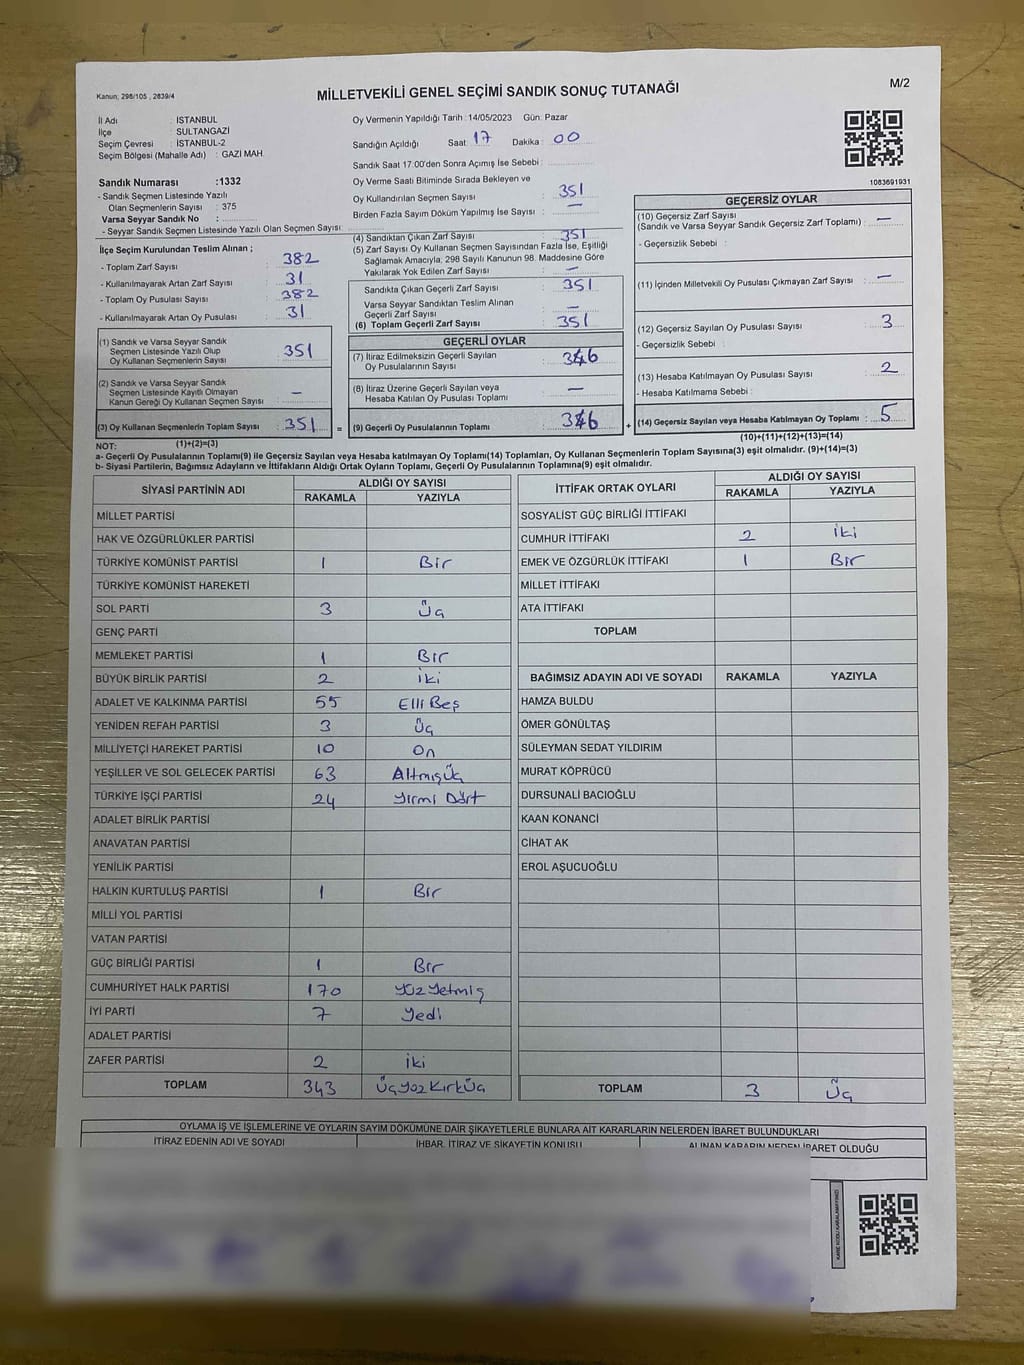 Kanun; 298/105 , 2839/4
MİLLETVEKİLİ GENEL SEÇİMİ SANDIK SONUÇ TUTANAĞI
M/2
İl Adı : İSTANBUL
İlçe : SULTANGAZİ
Seçim Çevresi : İSTANBUL-2
Seçim Bölgesi (Mahalle Adı) : GAZİ MAH.
Oy Vermenin Yapıldığı Tarih : 14/05/2023 Gün: Pazar
Sandığın Açıldığı Saat: 17 Dakika : 00
Sandık Saat 17:00'den Sonra Açımış İse Sebebi :
Oy Verme Saati Bitiminde Sırada Bekleyen ve
Oy Kullandırılan Seçmen Sayısı : 351
Birden Fazla Sayım Döküm Yapılmış İse Sayısı : —
1083691931
Sandık Numarası :1332
- Sandık Seçmen Listesinde Yazılı
Olan Seçmenlerin Sayısı : 375
Varsa Seyyar Sandık No :
- Seyyar Sandık Seçmen Listesinde Yazılı Olan Seçmen Sayısı :
İlçe Seçim Kurulundan Teslim Alınan ;
- Toplam Zarf Sayısı : 382
- Kullanılmayarak Artan Zarf Sayısı : 31
- Toplam Oy Pusulası Sayısı : 382
- Kullanılmayarak Artan Oy Pusulası : 31
(1) Sandık ve Varsa Seyyar Sandık
Seçmen Listesinde Yazılı Olup
Oy Kullanan Seçmenlerin Sayısı : 351
(2) Sandık ve Varsa Seyyar Sandık
Seçmen Listesinde Kayıtlı Olmayan
Kanun Gereği Oy Kullanan Seçmen Sayısı : —
(3) Oy Kullanan Seçmenlerin Toplam Sayısı : 351 =
(4) Sandıktan Çıkan Zarf Sayısı : 351
(5) Zarf Sayısı Oy Kullanan Seçmen Sayısından Fazla İse, Eşitliği
Sağlamak Amacıyla, 298 Sayılı Kanunun 98. Maddesine Göre
Yakılarak Yok Edilen Zarf Sayısı : —
Sandıkta Çıkan Geçerli Zarf Sayısı : 351
Varsa Seyyar Sandıktan Teslim Alınan
Geçerli Zarf Sayısı : —
(6) Toplam Geçerli Zarf Sayısı : 351
GEÇERLİ OYLAR
(7) İtiraz Edilmeksizin Geçerli Sayılan
Oy Pusulalarının Sayısı : 346
(8) İtiraz Üzerine Geçerli Sayılan veya
Hesaba Katılan Oy Pusulası Toplamı : —
(9) Geçerli Oy Pusulalarının Toplamı : 346 +
GEÇERSİZ OYLAR
(10) Geçersiz Zarf Sayısı
(Sandık ve Varsa Seyyar Sandık Geçersiz Zarf Toplamı) : —
- Geçersizlik Sebebi :
(11) İçinden Milletvekili Oy Pusulası Çıkmayan Zarf Sayısı : —
(12) Geçersiz Sayılan Oy Pusulası Sayısı : 3
- Geçersizlik Sebebi :
(13) Hesaba Katılmayan Oy Pusulası Sayısı : 2
- Hesaba Katılmama Sebebi :
(14) Geçersiz Sayılan veya Hesaba Katılmayan Oy Toplamı : 5
NOT: (1)+(2)=(3) (10)+(11)+(12)+(13)=(14)
a- Geçerli Oy Pusulalarının Toplamı(9) ile Geçersiz Sayılan veya Hesaba katılmayan Oy Toplamı(14) Toplamları, Oy Kullanan Seçmenlerin Toplam Sayısına(3) eşit olmalıdır. (9)+(14)=(3)
b- Siyasi Partilerin, Bağımsız Adayların ve İttifakların Aldığı Ortak Oyların Toplamı, Geçerli Oy Pusulalarının Toplamına(9) eşit olmalıdır.
SİYASİ PARTİNİN ADI ALDIĞI OY SAYISI
RAKAMLA YAZIYLA
MİLLET PARTİSİ
HAK VE ÖZGÜRLÜKLER PARTİSİ
TÜRKİYE KOMÜNİST PARTİSİ 1 Bir
TÜRKİYE KOMÜNİST HAREKETİ
SOL PARTİ 3 Üç
GENÇ PARTİ
MEMLEKET PARTİSİ 1 Bir
BÜYÜK BİRLİK PARTİSİ 2 iki
ADALET VE KALKINMA PARTİSİ 55 Elli Beş
YENİDEN REFAH PARTİSİ 3 Üç
MİLLİYETÇİ HAREKET PARTİSİ 10 On
YEŞİLLER VE SOL GELECEK PARTİSİ 63 Altmış Üç
TÜRKİYE İŞÇİ PARTİSİ 24 Yirmi Dört
ADALET BİRLİK PARTİSİ
ANAVATAN PARTİSİ
YENİLİK PARTİSİ
HALKIN KURTULUŞ PARTİSİ 1 Bir
MİLLİ YOL PARTİSİ
VATAN PARTİSİ
GÜÇ BİRLİĞİ PARTİSİ 1 Bir
CUMHURİYET HALK PARTİSİ 170 Yüz Yetmiş
İYİ PARTİ 7 Yedi
ADALET PARTİSİ
ZAFER PARTİSİ 2 iki
TOPLAM 343 Üç Yüz Kırk Üç
İTTİFAK ORTAK OYLARI ALDIĞI OY SAYISI
RAKAMLA YAZIYLA
SOSYALİST GÜÇ BİRLİĞİ İTTİFAKI
CUMHUR İTTİFAKI 2 iki
EMEK VE ÖZGÜRLÜK İTTİFAKI 1 Bir
MİLLET İTTİFAKI
ATA İTTİFAKI
TOPLAM
BAĞIMSIZ ADAYIN ADI VE SOYADI RAKAMLA YAZIYLA
HAMZA BULDU
ÖMER GÖNÜLTAŞ
SÜLEYMAN SEDAT YILDIRIM
MURAT KÖPRÜCÜ
DURSUNALİ BACIOĞLU
KAAN KONANCİ
CİHAT AK
EROL AŞUCUOĞLU
TOPLAM 3 Üç
OYLAMA İŞ VE İŞLEMLERİNE VE OYLARIN SAYIM DÖKÜMÜNE DAİR ŞİKAYETLERLE BUNLARA AİT KARARLARIN NELERDEN İBARET BULUNDUKLARI
İTİRAZ EDENİN ADI VE SOYADI İHBAR, İTİRAZ VE ŞİKAYETİN KONUSU ALINAN KARARIN NEDEN İBARET OLDUĞU